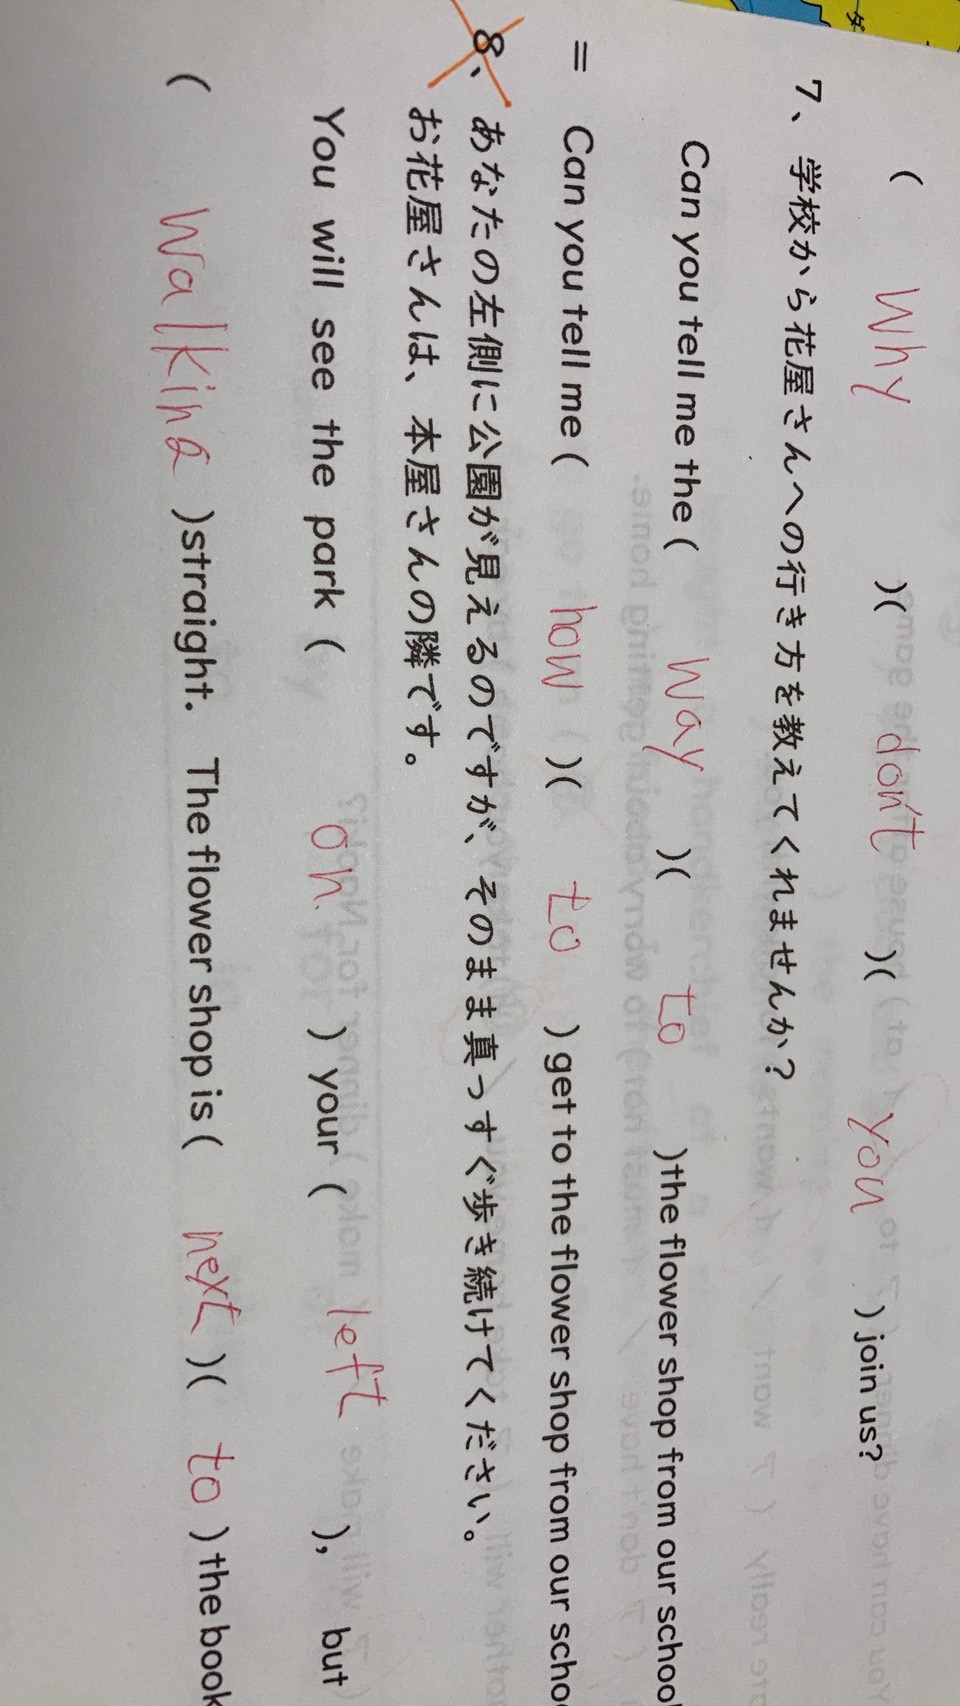 ダ
( Why )( don't )( you ) join us?
7、学校から花屋さんへの行き方を教えてくれませんか?
Can you tell me the ( way )( to )the flower shop from our school
= Can you tell me ( how )( to ) get to the flower shop from our schoo
8、あなたの左側に公園が見えるのですが、そのまま真っすぐ歩き続けてください。
お花屋さんは、本屋さんの隣です。
You will see the park ( on ) your ( left ), but
( walking )straight. The flower shop is ( next )( to ) the book